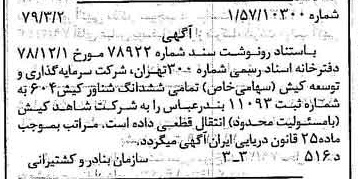 شماره ۱/۵۷/۱۰۳۰۰ ۷۹/۳/۲
آگهی
باستناد رونوشت سند شماره ۷۸۹۲۲ مورخ ۷۸/۱۲/۱
دفترخانه اسناد رسمی شماره ۳۰۰ تهران، شرکت سرمایه‌گذاری و
توسعه کیش (سهامی خاص) تمامی ششدانگ شناور کیش ۶۰۴ به
شماره ثبت ۱۱۰۹۳ بندرعباس را به شرکت شاهد کیش
(بامسئولیت محدود) انتقال قطعی داده است. مراتب بموجب
ماده ۲۵ قانون دریایی ایران آگهی میگردد.
د ۵۱۶ ۳-۳ سازمان بنادر و کشتیرانی